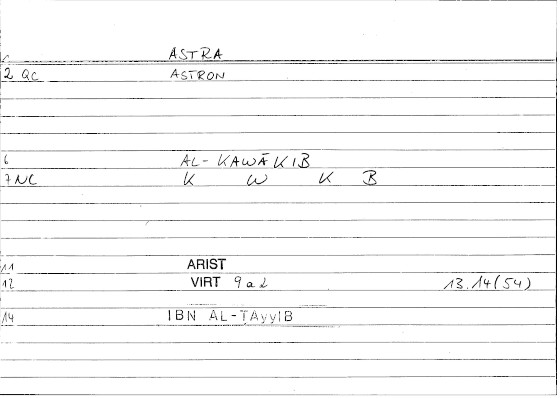 ASTRA
2 QC ASTRON
6 AL-KAWĀKIB
7 NC K W K B
11 ARIST
12 VIRT 9a2 13.14(54)
14 IBN AL-ṬAyyIB